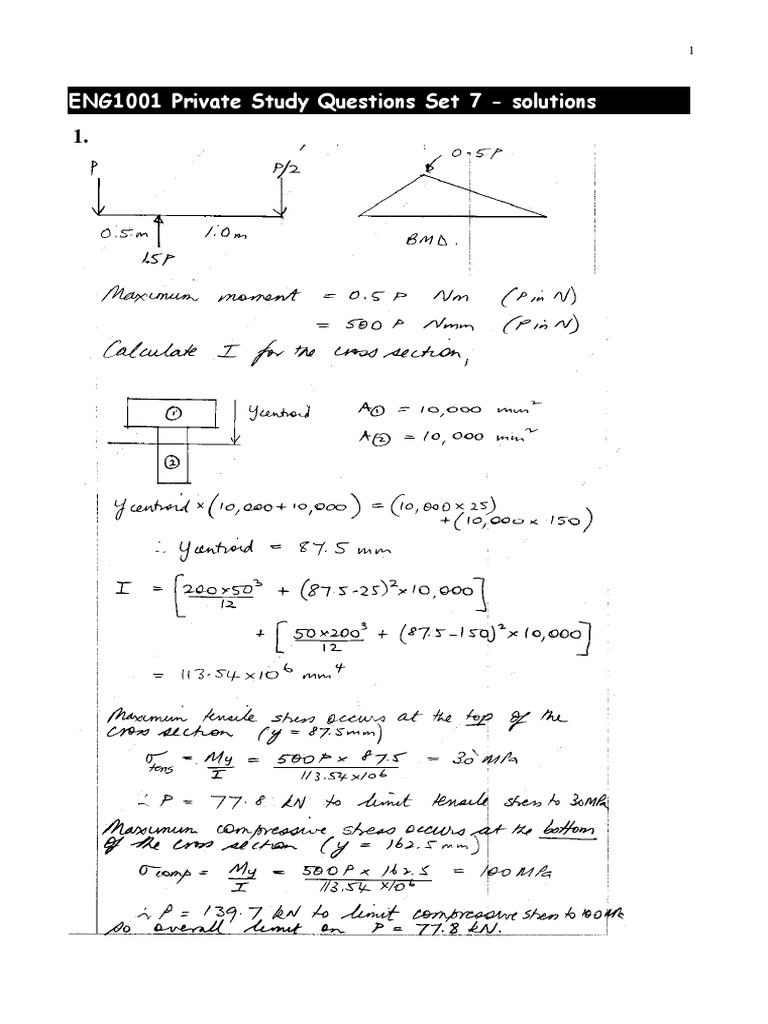 1
ENG1001 Private Study Questions Set 7 - solutions
1.
P P/2 0.5P
0.5m 1.0m
1.5P
BMD.
Maximum moment = 0.5 P Nm (P in N)
= 500 P Nmm (P in N)
Calculate I for the cross section,
① ycentroid A① = 10,000 mm²
A② = 10,000 mm²
②
ycentroid × (10,000 + 10,000) = (10,000 × 25)
+ (10,000 × 150)
∴ ycentroid = 87.5 mm
I = [200×50³/12 + (87.5-25)²×10,000]
+ [50×200³/12 + (87.5-150)²×10,000]
= 113.54×10⁶ mm⁴
Maximum tensile stress occurs at the top of the
cross section (y = 87.5mm)
σtens = My/I = 500P × 87.5/113.54×10⁶ = 30 MPa
∴ P = 77.8 kN to limit tensile stress to 30MPa
Maximum compressive stress occurs at the bottom
of the cross section (y = 162.5 mm)
σcomp = My/I = 500P × 162.5/113.54×10⁶ = 100 MPa
∴ P = 139.7 kN to limit compressive stress to 100 MPa
so overall limit on P = 77.8 kN.